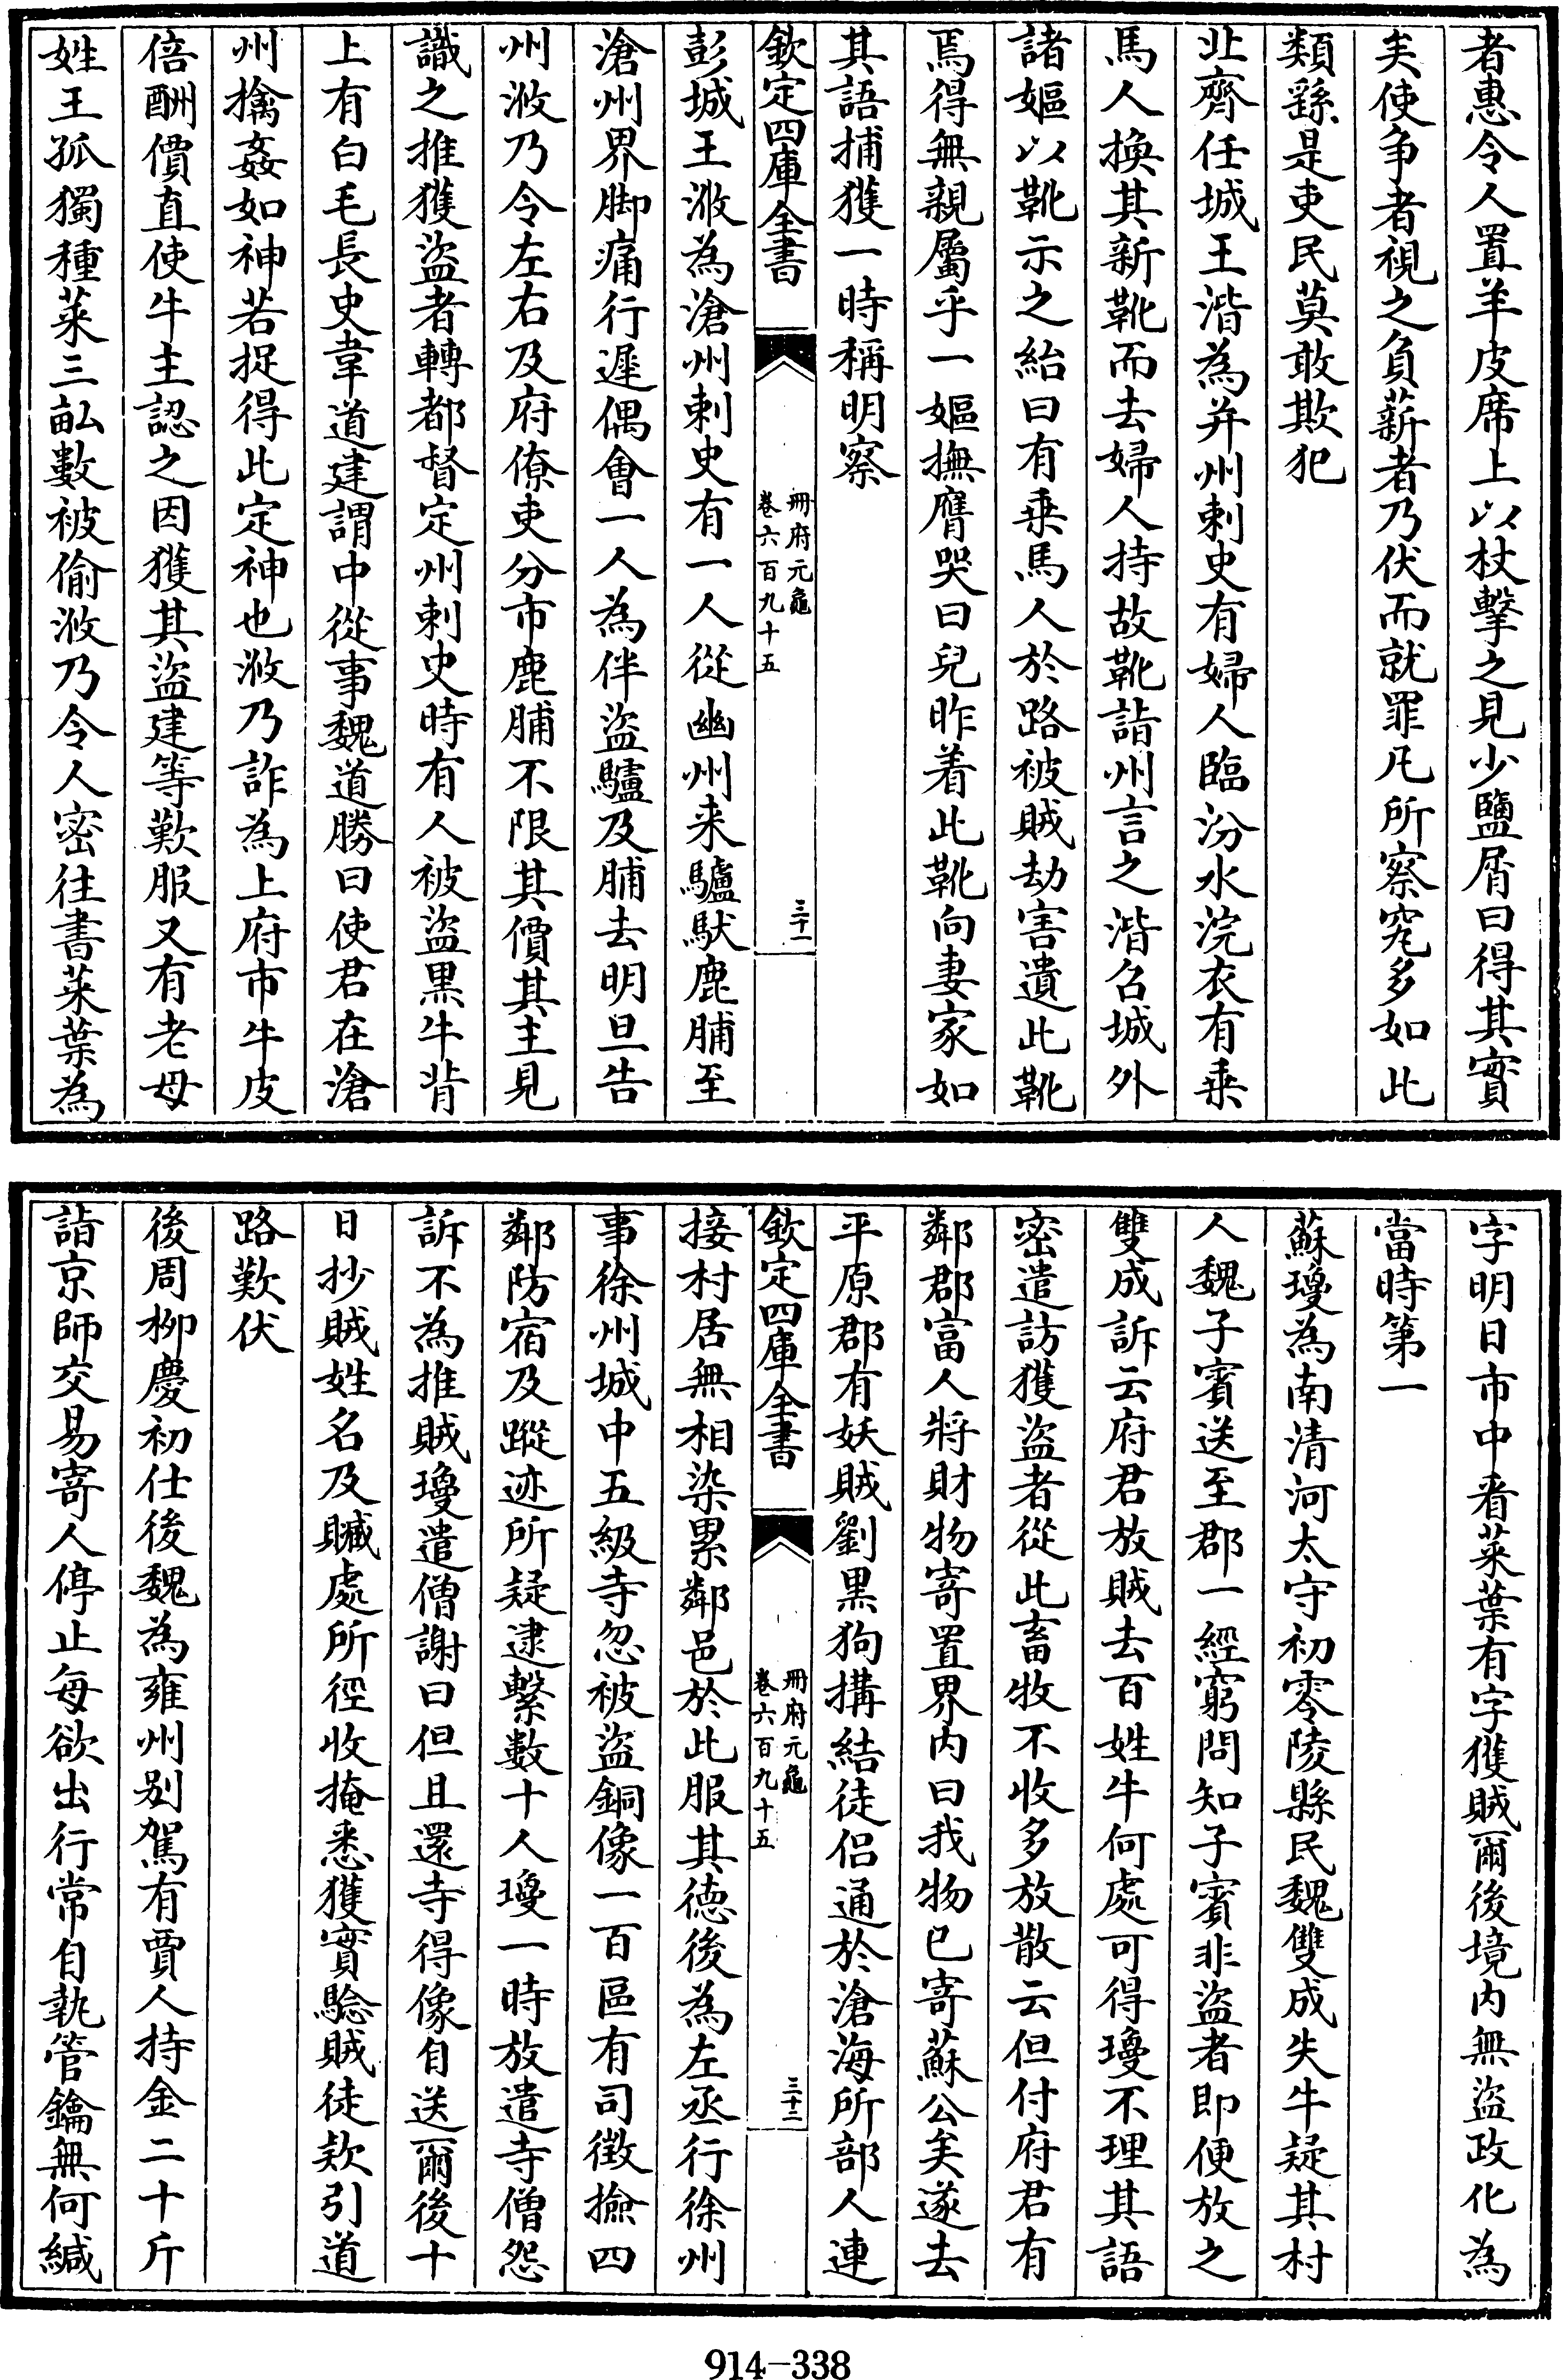 者惠令人置羊皮席上以杖擊之見少鹽屑曰得其實
矣使爭者視之負薪者乃伏而就罪凡所察究多如此
類繇是吏民莫敢欺犯
北齊任城王湝為并州刺史有婦人臨汾水浣衣有乗
馬人換其新靴而去婦人持故靴詣州言之湝召城外
諸嫗以靴示之紿曰有乗馬人於路被賊劫害遺此靴
焉得無親屬乎一嫗撫膺哭曰兒昨着此靴向妻家如
其語捕獲一時稱明察
欽定四庫全書
冊府元龜
卷六百九十五
三十一
彭城王浟為滄州刺史有一人從幽州来驢䭾鹿脯至
滄州界脚痛行遲偶會一人為伴盜驢及脯去明旦告
州浟乃令左右及府僚吏分市鹿脯不限其價其主見
識之推獲盜者轉都督定州刺史時有人被盜黒牛背
上有白毛長史韋道建謂中從事魏道勝曰使君在滄
州擒姦如神若捉得此定神也浟乃詐為上府市牛皮
倍酬價直使牛主認之因獲其盜建等歎服又有老母
姓王孤獨種菜三畝數被偷浟乃令人密往書菜葉為
字明日市中看菜葉有字獲賊爾後境内無盜政化為
當時第一
蘇瓊為南清河太守初零陵縣民魏雙成失牛疑其村
人魏子賓送至郡一經窮問知子賓非盜者即便放之
雙成訴云府君放賊去百姓牛何處可得瓊不理其語
密遣訪獲盜者從此畜牧不收多放散云但付府君有
鄰郡富人將財物寄置界内曰我物已寄蘇公矣遂去
平原郡有妖賊劉黒狗搆結徒侣通於滄海所部人連
欽定四庫全書
冊府元龜
卷六百九十五
三十二
接村居無相染累鄰邑於此服其徳後為左丞行徐州
事徐州城中五級寺忽被盜銅像一百區有司徴撿四
鄰防宿及蹤迹所疑逮繫數十人瓊一時放遣寺僧怨
訴不為推賊瓊遣僧謝曰但且還寺得像自送爾後十
日抄賊姓名及贓處所徑收掩悉獲實驗賊徒欵引道
路歎伏
後周柳慶初仕後魏為雍州别駕有賈人持金二十斤
詣京師交易寄人停止每欲出行常自執管鑰無何緘
914-338